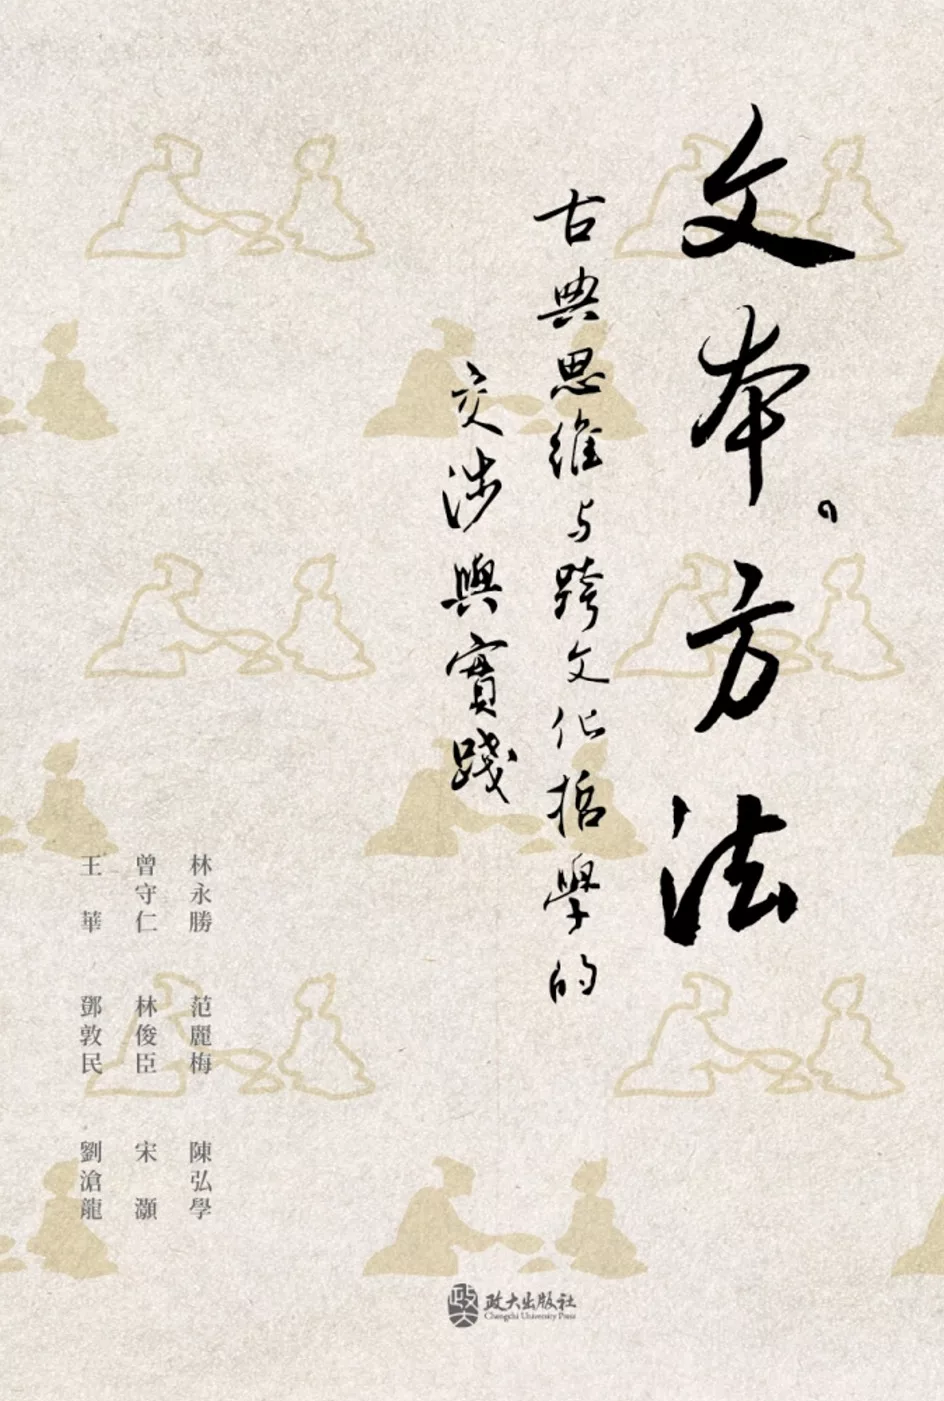 文本。方法
古典思維与跨文化哲學的
交涉與實踐
林永勝 范麗梅 陳弘學
曾守仁 林俊臣 宋灝
王華 鄧敦民 劉滄龍
政大
政大出版社
Chengchi University Press